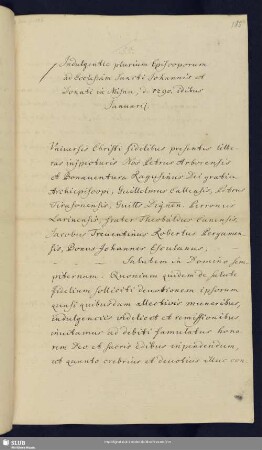 185
Indulgentie plurium Episcoporum
ad Ecclesiam Sancti Johannis et
Donati in Misna, de 1290. Editus
Januarij.
Universis Christi fidelibus presentes litte
ras inspecturis Nos Petrus Arborensis
et Bonaventura Ragusinus Dei gratia
Archiepiscopi, Guillelmus Callensis, Petrus
Tirasonensis, Perronus
Larinensis, frater Theobaldus Canensis,
Jacobus Treventinus Robertus Pergamen-
sis, Bonus Johannes Esculanus,
Salutem in Domino sem
piternam: Quoniam quidem de salute
fidelium solliciti devotionem ipsorum
quasi quibusdam allectivis muneribus,
indulgenciis videlicet et remissionibus
invitamus ad debiti famulatus hono
rem Deo et sacris edibus inpendendum,
et quanto crebrius et devotius illuc con
SLUB
Wir führen Wissen.